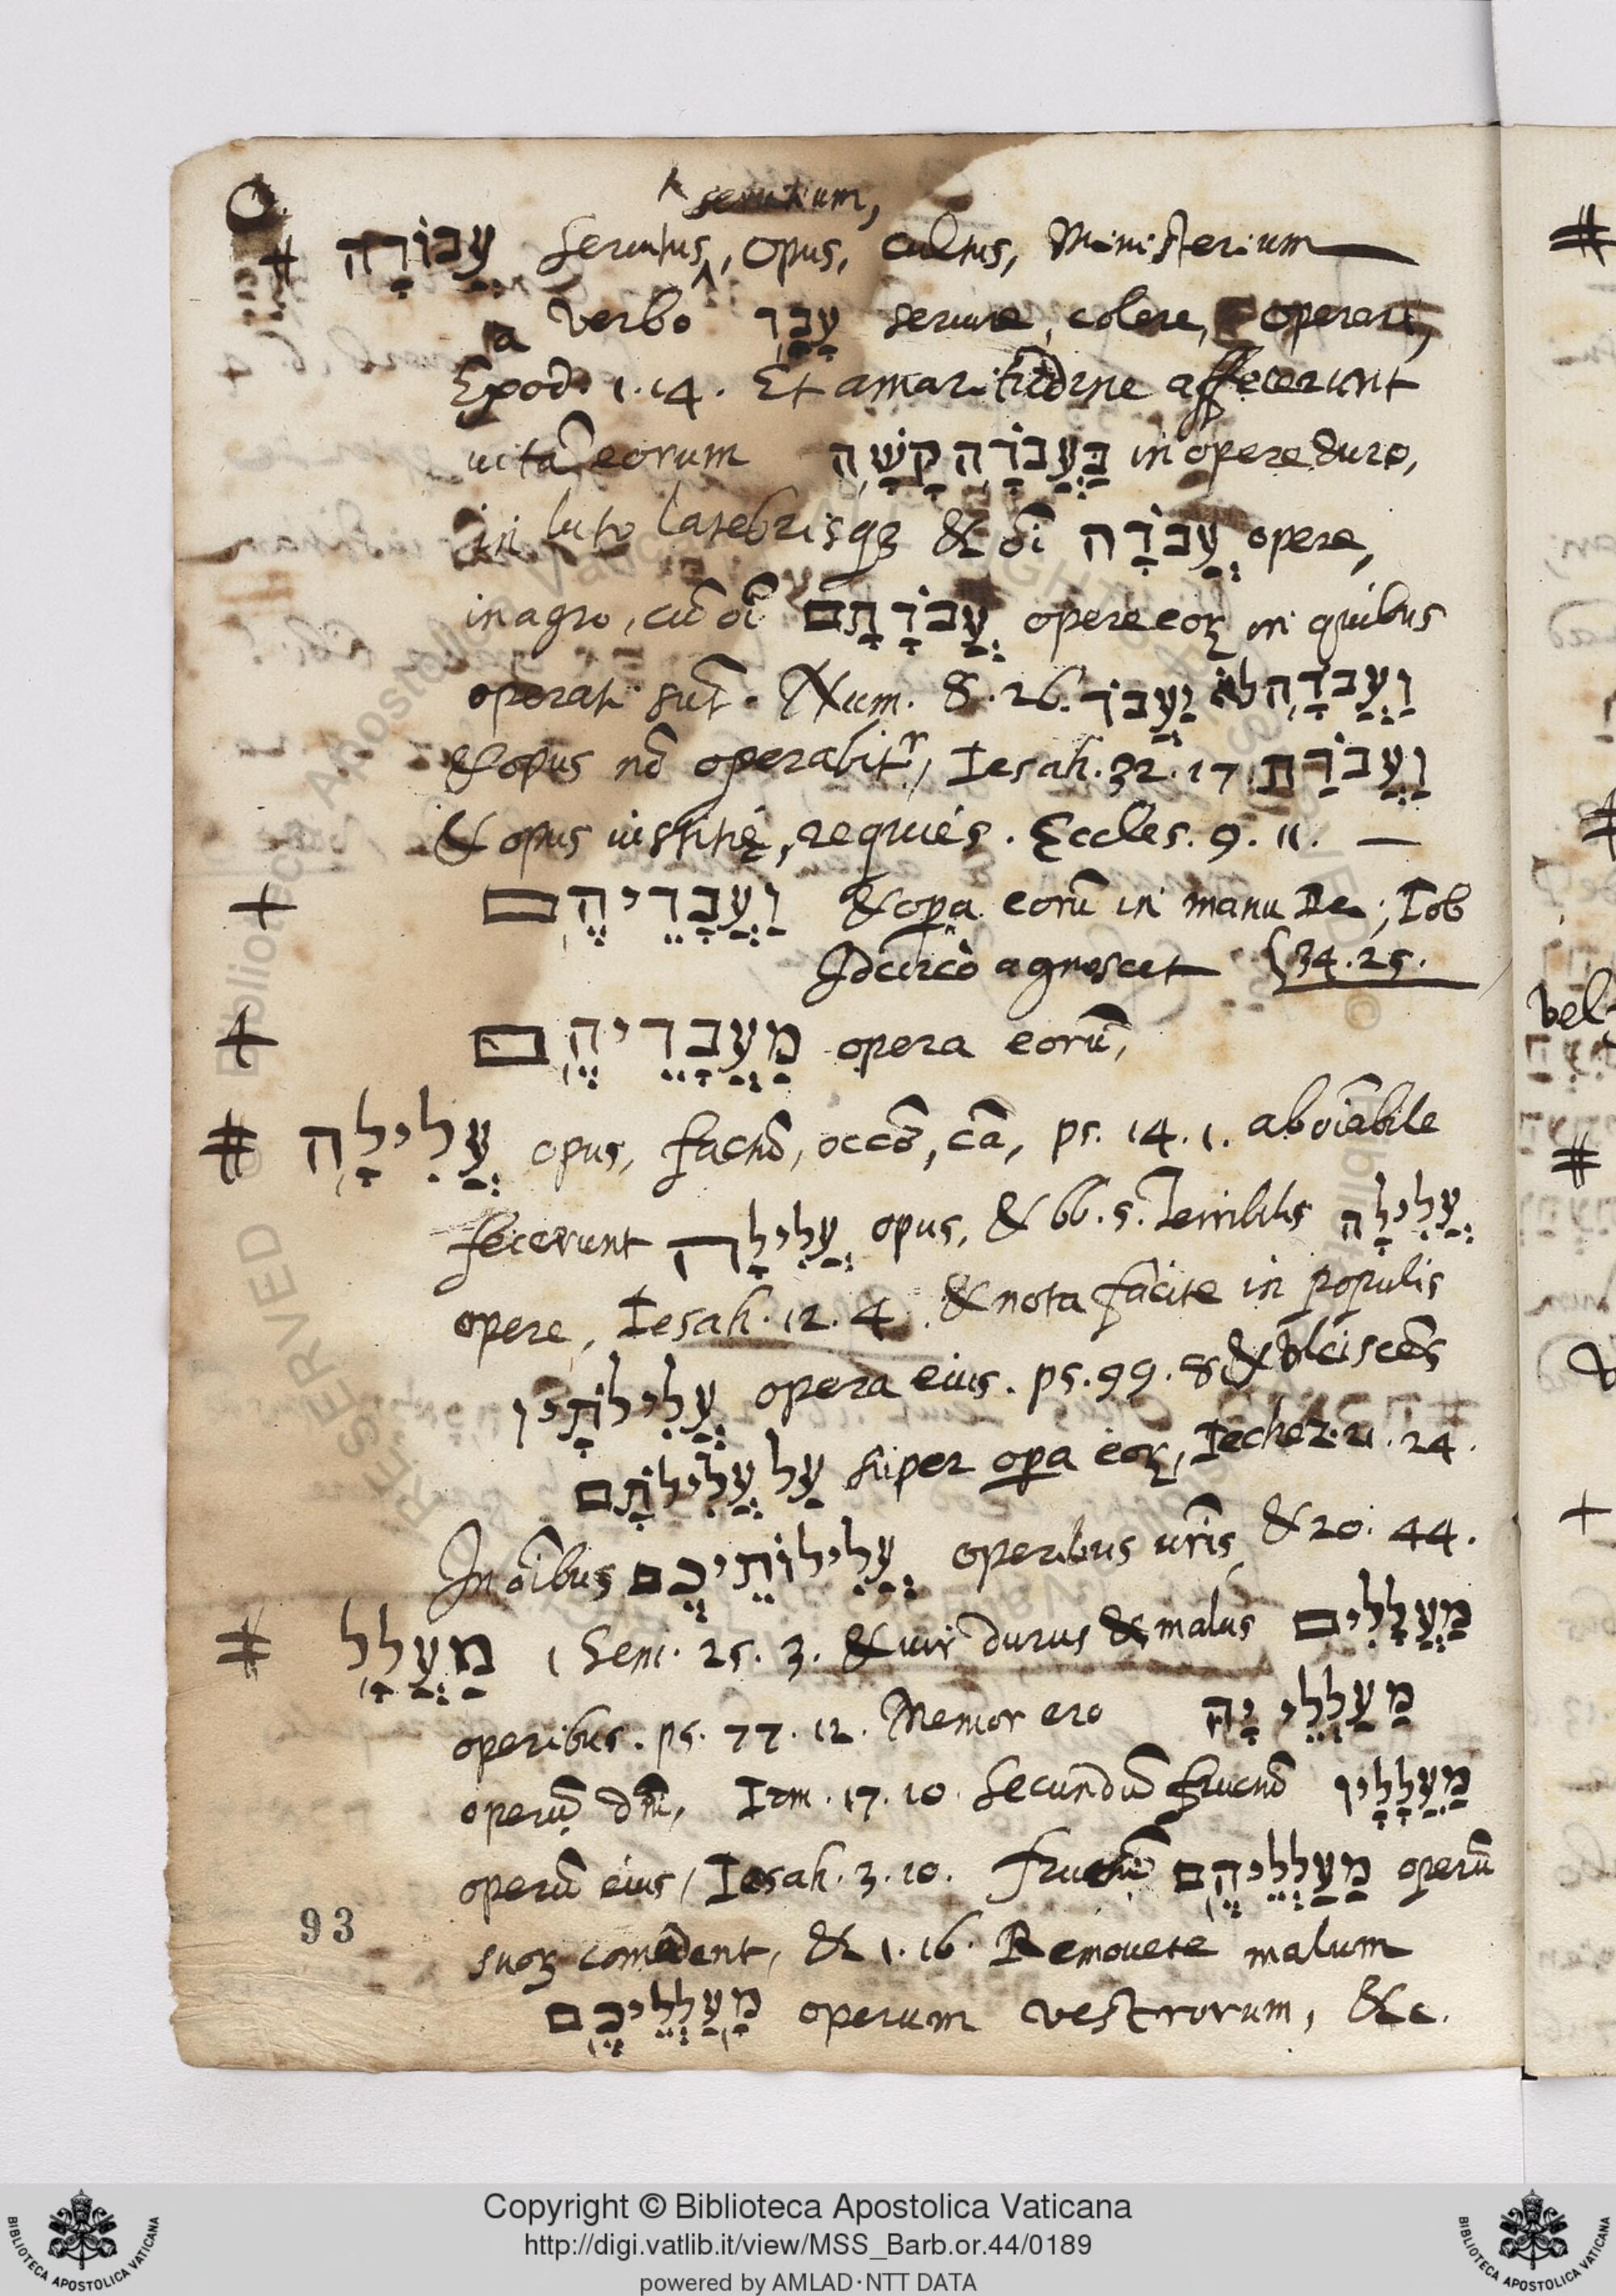 O.
seruitium,
# עֲבוֹדָה Seruitus, opus, cultus, Ministerium
a verbo עָבַד seruire, colere, operari,
Exod. 1. 14. Et amaritudine affecerunt
uitã eorum בַּעֲבֹדָה קָשָׁה in opere duro,
in luto latebrisqꝫ & oĩ עֲבֹדָה opere,
in agro, cũ oĩ עֲבֹדָתָם opere eoꝝ in quibus
operati sũt. Num. 8. 26. וַעֲבֹדָה לֹא יַעֲבֹד
& opus nõ operabitr, Iesah. 32. 17. וַעֲבֹדַת
& opus iustitię, requies. Eccles. 9. 11. —
+ וַעֲבָדֵיהֶם & oꝑa eorũ in manu Dei; Iob
Idcircò agnoscet {34. 25.
+ מַעְבָּדֵיהֶם opera eorũ,
# עֲלִילָה opus, facnõ, occõ, cã, ps. 14. 1. aboĩabile
fecerunt עֲלִילָה opus, & 66. 5. Terribilis עֲלִילָה
opere, Iesah. 12. 4. & nota facite in populis
עֲלִילֹתָיו opera eius. ps. 99. 8 & vlciscẽs
עַל עֲלִילֹתָם super oꝑa eoꝝ, Iechez. 21. 24.
In oĩbus עֲלִילוֹתֵיכֶם operibus ur̃is & 20. 44.
# מַעֲלָל 1 Sem. 25. 3. & uir durus & malus מַעֲלָלִים
operibus. ps. 77. 12. Memor ero מַעַלְלֵי יָהּ
operũ dñi, Irm. 17. 10. Secundũ fructũ מַעֲלָלָיו
operũ eius, Iesah. 3. 10. fructũ מַעַלְלֵיהֶם operũ
suoꝝ comedent, & 1. 16. Remouete malum
מַעַלְלֵיכֶם operum vestrorum, &c.
93
Copyright © Biblioteca Apostolica Vaticana
http://digi.vatlib.it/view/MSS_Barb.or.44/0189
powered by AMLAD·NTT DATA